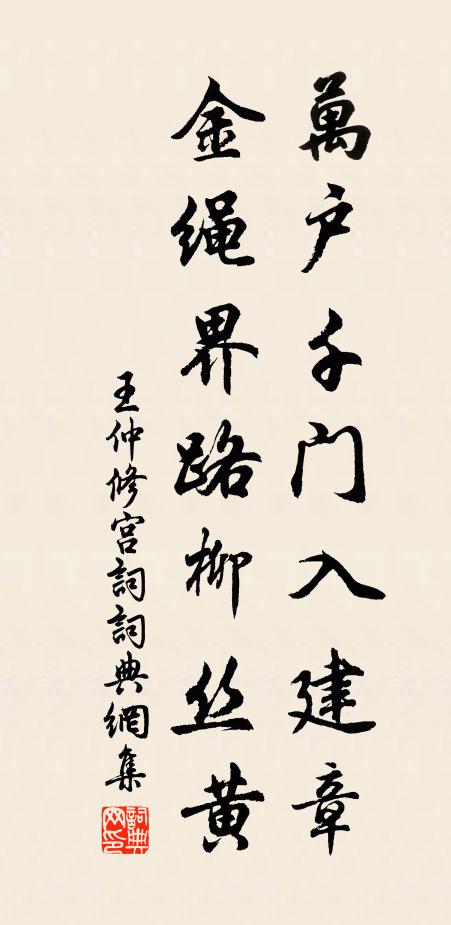 萬户千门入建章
金绳界路柳丝黄
王仲修宫詞詞典網集
詞典网印